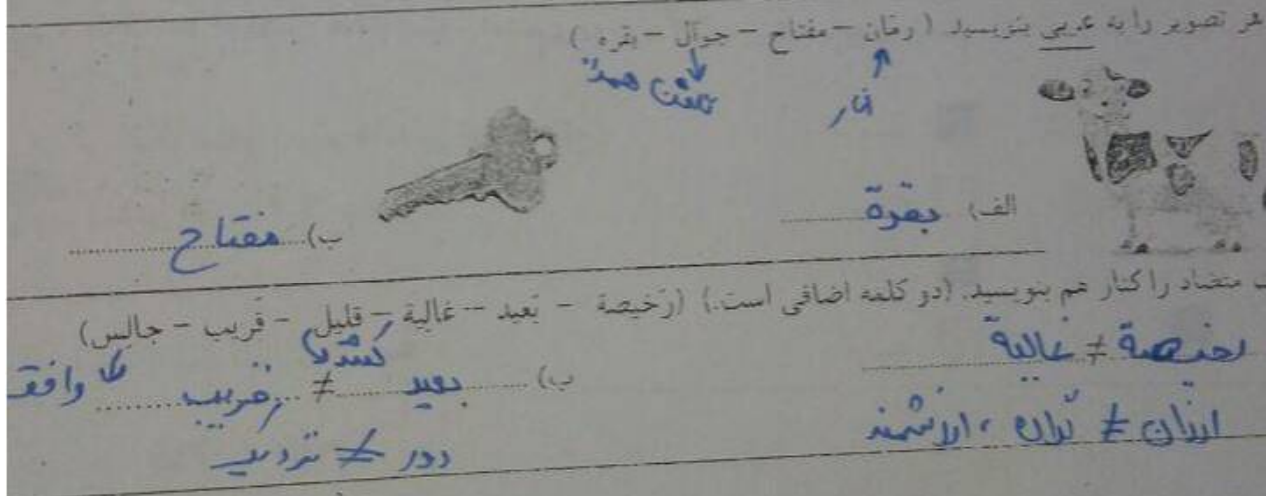 هر تصویر را به عربی بنویسید ( رمّان – مفتاح – جوّال – بقره )
انار تلفن همراه
الف) بقرة
ب) مفتاح
متضاد را کنار هم بنویسید. (دو کلمه اضافی است.) (رَخیصة – بَعید – غالیة – قَلیل – قَریب – جالِس)
رخیصة ≠ غالیة
ب) بعید ≠ قریب
ارزان ≠ گران ، ارزشمند
دور ≠ نزدیک